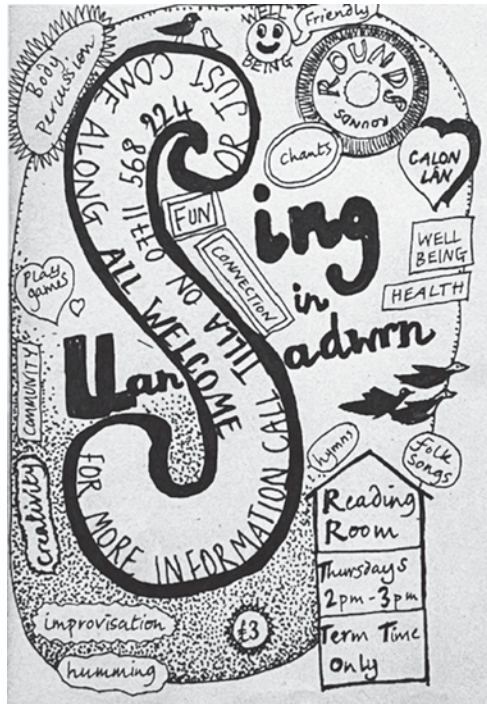 Body
Percussion
WELL
BEING
Friendly
ROUNDS
ROUNDS
chants
CALON
LÂN
FUN
CONNECTION
Sing
in
Llansadwrn
WELL
BEING
HEALTH
Play
games
COMMUNITY
Creativity
FOR MORE INFORMATION CALL TILLA ON 07711 568 224 OR JUST COME ALONG ALL WELCOME
hymns
folk
songs
Reading
Room
Thursdays
2pm-3pm
Term Time
Only
improvisation
£3
humming